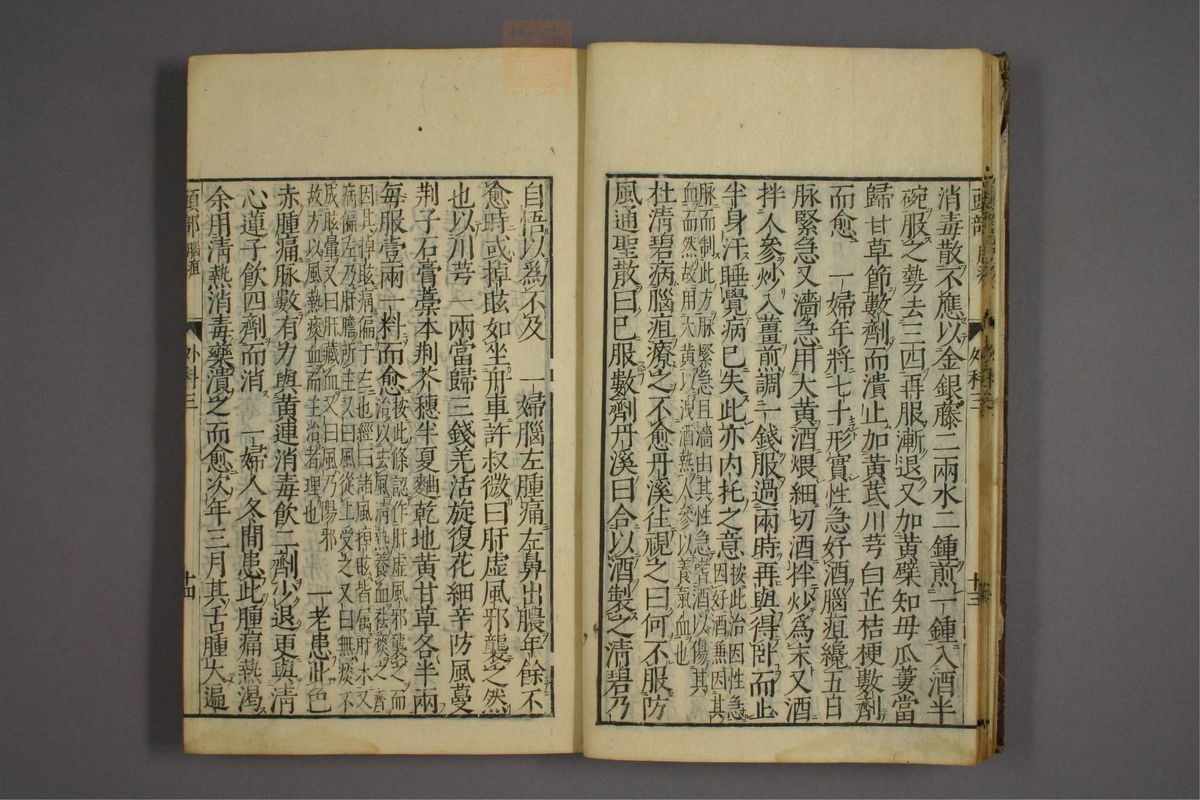 消毒散不應以金銀藤二兩水二鍾煎一鍾入酒半
碗服之勢去三四再服漸退又加黃蘗知母瓜蔞當
歸甘草節數劑而潰止加黃茋川芎白芷桔梗數劑
而愈　一婦年將七十形實性急好酒腦疽纔五日
脉緊急又濇急用大黃酒煨細切酒拌炒爲末又酒
拌人參炒入薑煎調一錢服過兩時再與得臥而上
半身汗睡覺病已失此亦内托之意
按此治因性急
因好酒
因其
脉而制此方脉緊急且濇由其性急嗜酒以傷其
血而然故用大黃以洩酒熱人參以養氣血也
杜清碧病腦疽療之不愈丹溪往視之曰何不服防
風通聖散曰已服數劑丹溪曰合以酒製之清碧乃
外科三
十三
自悟以爲不及　一婦腦左腫痛左鼻出膿年餘不
愈時或掉眩如坐舟車許叔微曰肝虛風邪襲之然
也以川芎一兩當歸三錢羌活旋復花細辛防風蔓
荆子石膏藁本荆芥穗半夏麯乾地黃甘草各半兩
每服壹兩一料而愈
按此條認作肝虛風邪襲之而
治以去風清熱養血祛痰之齊
因其掉眩痛偏于左也經曰諸風掉眩皆屬肝木又
病偏左乃肝膽所主又曰風從上受之又曰無痰不
成眩暈又曰肝藏血又曰風乃傷邪
故方以風熱痰血而主治者理也
一老患此色
赤腫痛脉數有力與黃連消毒飲二劑少退更與清
心蓮子飲四劑而消　一婦人冬間患此腫痛熱渴
余用清熱消毒藥潰之而愈次年三月其舌腫大遍
頭部腦疽
外科三
十四